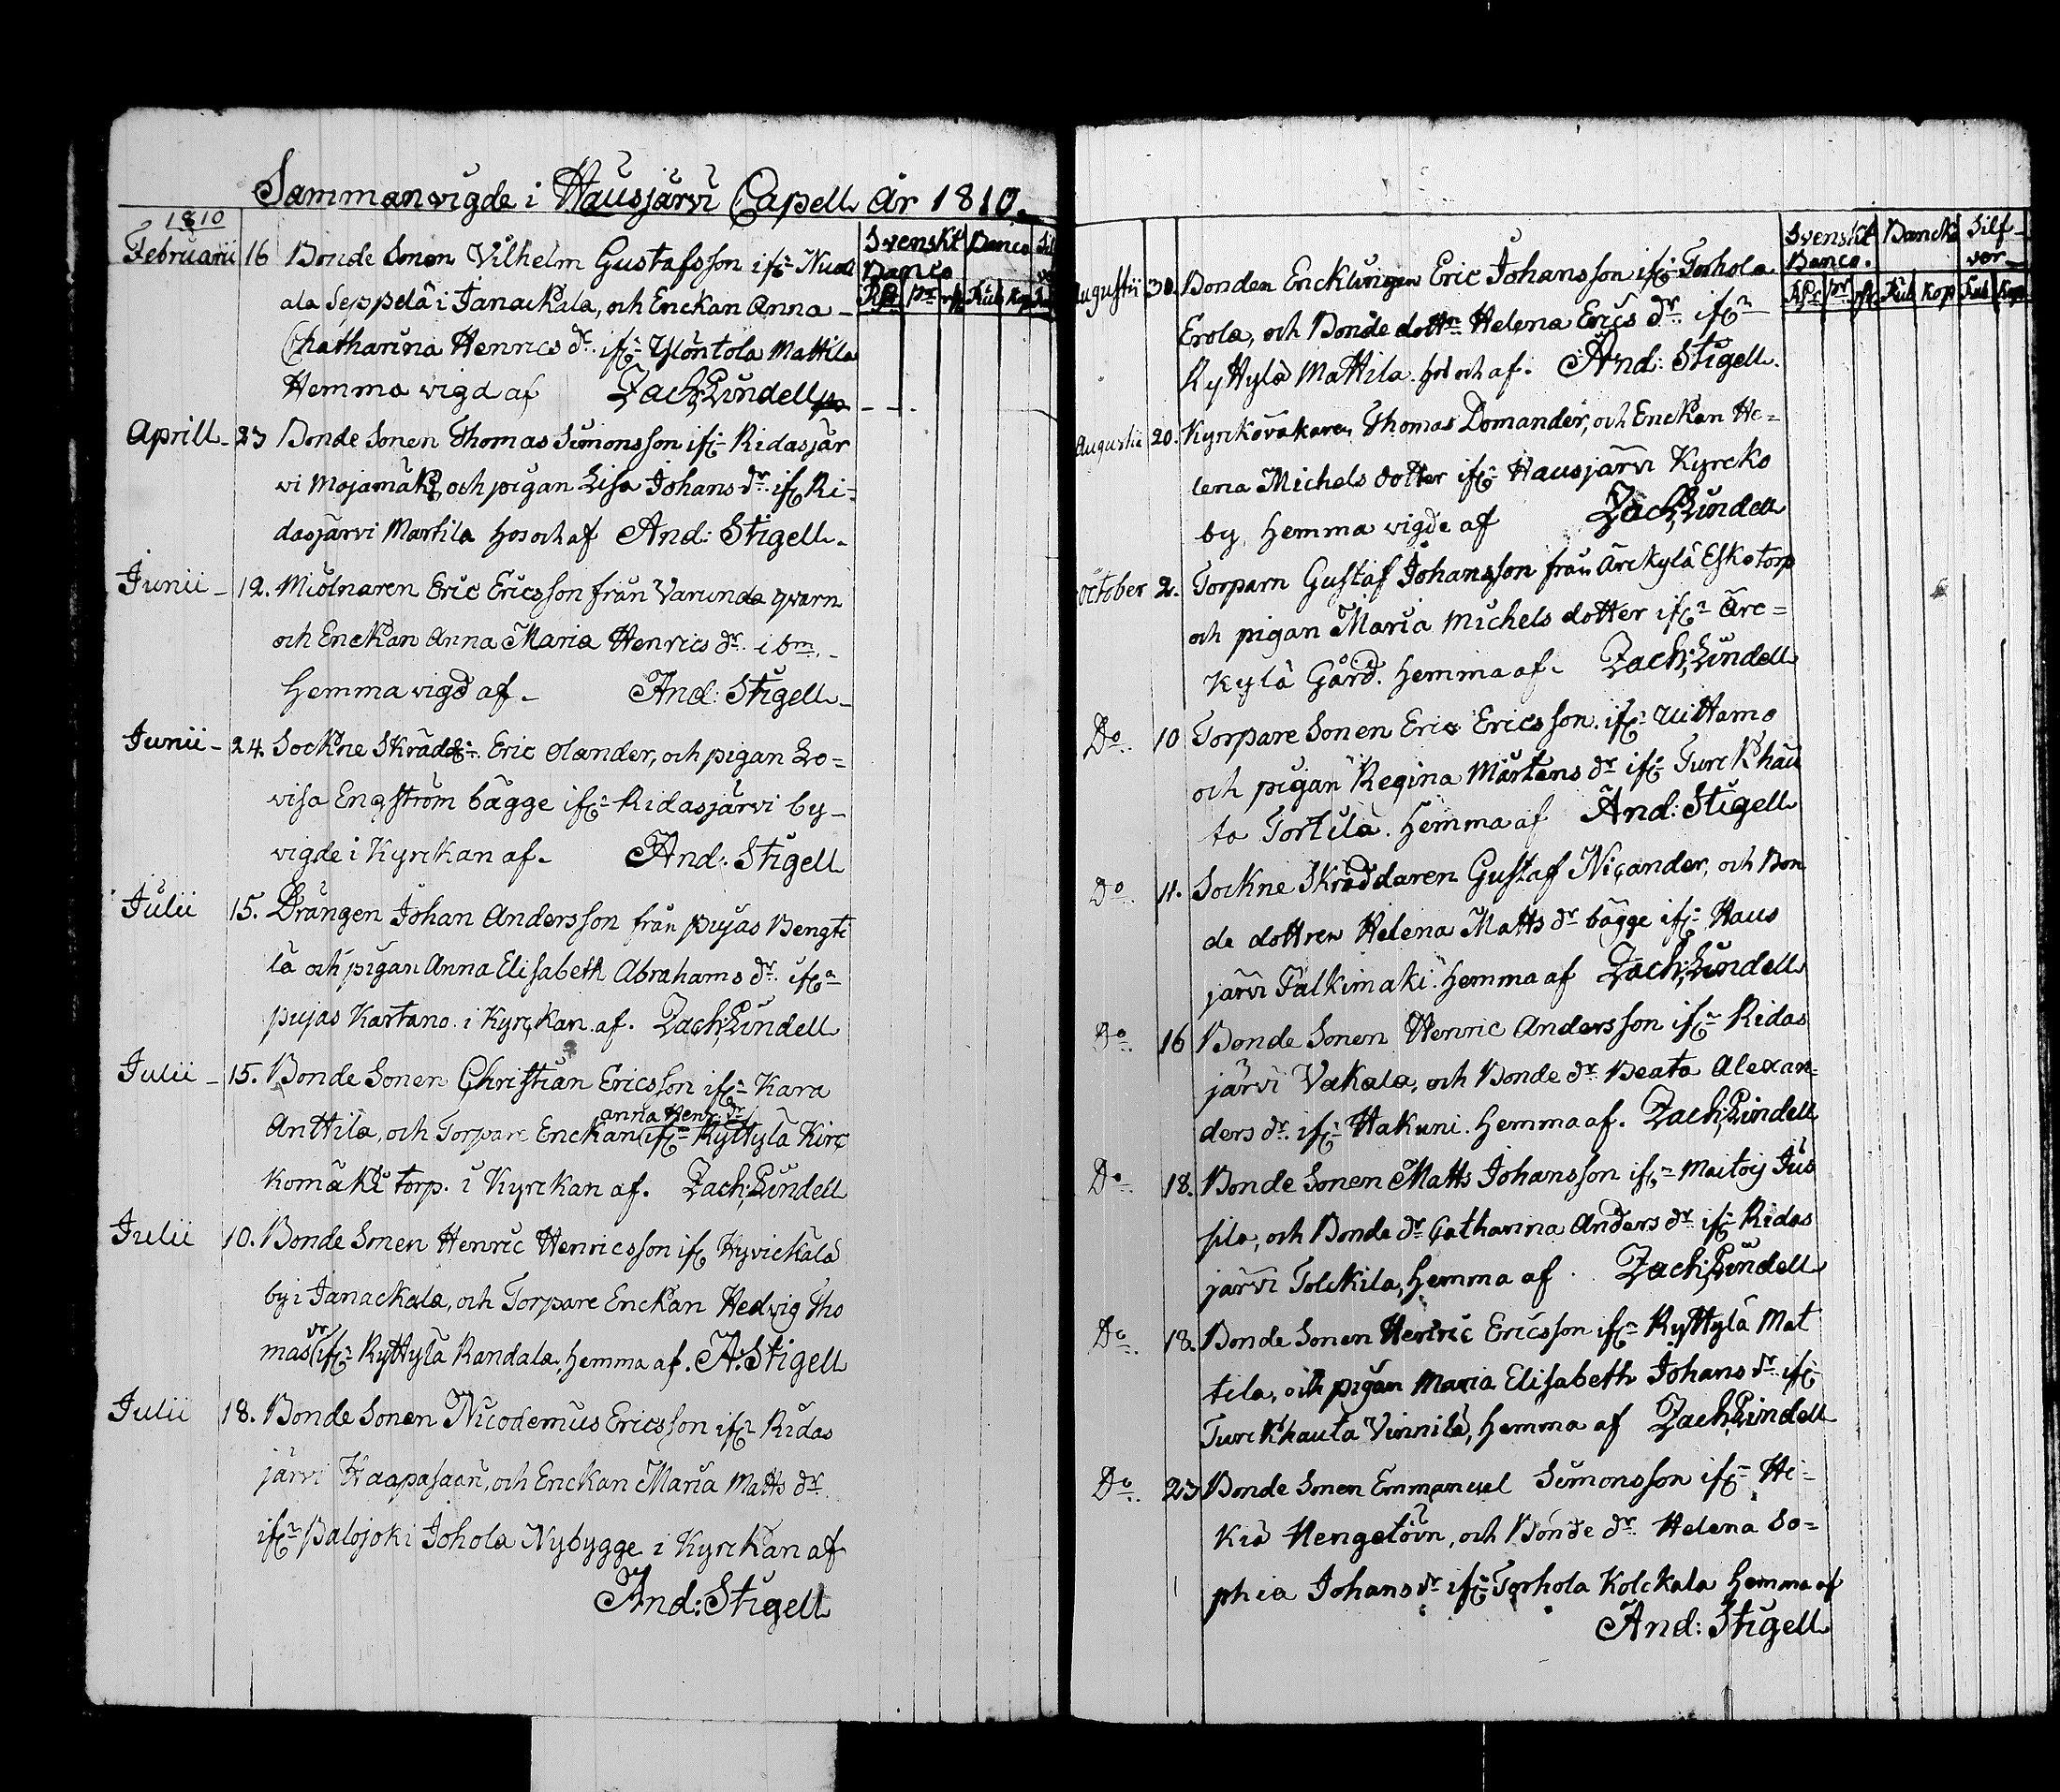 Sammanvigde i Hausjärvi Capell år 1810.
1810
Svenskt Banco Banco Sil
Rdr sk. rst Rub Kop
Februarii 16 Bonde Sonen Vilhelm Gustafsson ifr: Nuoli
ala Seppelä i Janackala, och Enckan Anna
Chatharina Henrics dr. ifr: Ylöntola Mattila
Hemma vigd af Zach: Lindell
Aprill 23 Bonde Sonen Thomas Simonsson ifr: Ridasjär
vi Mojamäki och pigan Lisa Johans dr. ifr: Ri=
dasjärvi Martila hos och af And: Stigell.
Junii 12. Miölnaren Eric Ericsson från Varunda qvarn
och Enckan Anna Maria Henrics dr. i bm.
Hemma vigd af And: Stigell
Junii 24. Sockne Skrädd: Eric Olander, och pigan Lo=
visa Engström bägge ifr: Ridasjärvi by
vigde i Kyrckan af. And: Stigell
Julii 15. Drängen Johan Andersson från pujas Bengti
lä och pigan Anna Elisabeth Abrahams dr. ifr:
pujas Kartano. i Kyrckan af. Zach: Lindell
Julii 15. Bonde Sonen Christian Ericsson ifr: Kara
anna Henr: dr
Anttila, och Torpare Enckan ifr: Ryttylä Kirc
komäki torp. i Kyrckan af. Zach: Lindell
Julii 10. Bonde Sonen Henric Henricsson ifr: Hyvickälä
by i Janackala, och Torpare Enckan Hedvig Tho
mas dr ifr: Ryttylä Randala, hemma af. A: Stigell
Julii 18. Bonde Sonen Nicodemus Ericsson ifr: Ridas
järvi Haapasaari, och Enckan Maria Matts dr.
ifr: Palojoki Johola Nybygge i Kyrckan af
And: Stigell
Svenskt Banco. Banck Silf-
ver
Rdr sk rst Rub Kop Rub Kop
Augustii 30. Bonden Encklingen Eric Johansson ifr: Torhola
Erola, och Bonde dottr: Helena Erics dr. ifr:
Ryttylä Mattila. hos och af. And: Stigell.
Augustii 20. Kyrckovakaren Thomas Domander, och Enckan He=
lena Michels dotter ifr: Hausjärvi Kyrcko
by, hemma vigde af Zach: Lindell
October 2. Torparn Gustaf Johansson från Ärckylä Esko torp
och pigan Maria Michels dotter ifr: Ärc=
kylä Gård. hemma af. Zach: Lindell
Do. 10 Torpare Sonen Eric Ericsson. ifr: Uittamo
och pigan Regina Mårtens dr ifr: Turckhau
ta Tortila. hemma af And: Stigell
Do. 11. Sockne Skräddaren Gustaf Nicander, och Bon
de dottren Helena Matts dr bägge ifr: Haus
järvi Palkimäki. hemma af Zach: Lindell
Do. 16 Bonde Sonen Henric Andersson ifr: Ridas
järvi Vakala, och Bonde dr. Beata Alexan=
ders dr. ifr: Hakuni. hemma af. Zach: Lindell
Do. 18. Bonde Sonen Matts Johansson ifr: Maitoij Jus
sila, och Bonde dr. Catharina Anders dr. ifr: Ridas
järvi Tolckila, hemma af. Zach: Lindell
Do. 18. Bonde Sonen Henric Ericsson ifr: Ryttylä Mat
tila, och pigan Maria Elisabeth Johans dr. ifr:
Turckhauta Vinnilä, hemma af Zach: Lindell
Do. 23 Bonde Sonen Emmanuel Simonsson ifr: He
kiä Hengetövn, och Bonde dr. Helena So=
phia Johans dr ifr: Torhola Kolckala hemma af
And: Stigell